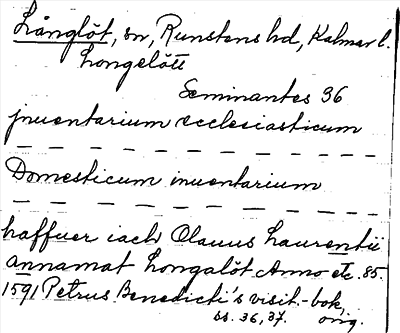 Långlöt, sn, Runstens hd, Kalmar l.
Longelött
Seminantes 36
jnuentarium ecclesiasticum
Domesticum inuentarium
haffuer iach Olauus Laurentii
annamat Longalöt Anno etc. 85.
1591 Petrus Benedicti's visit.-bok,
bs. 36, 37. orig.